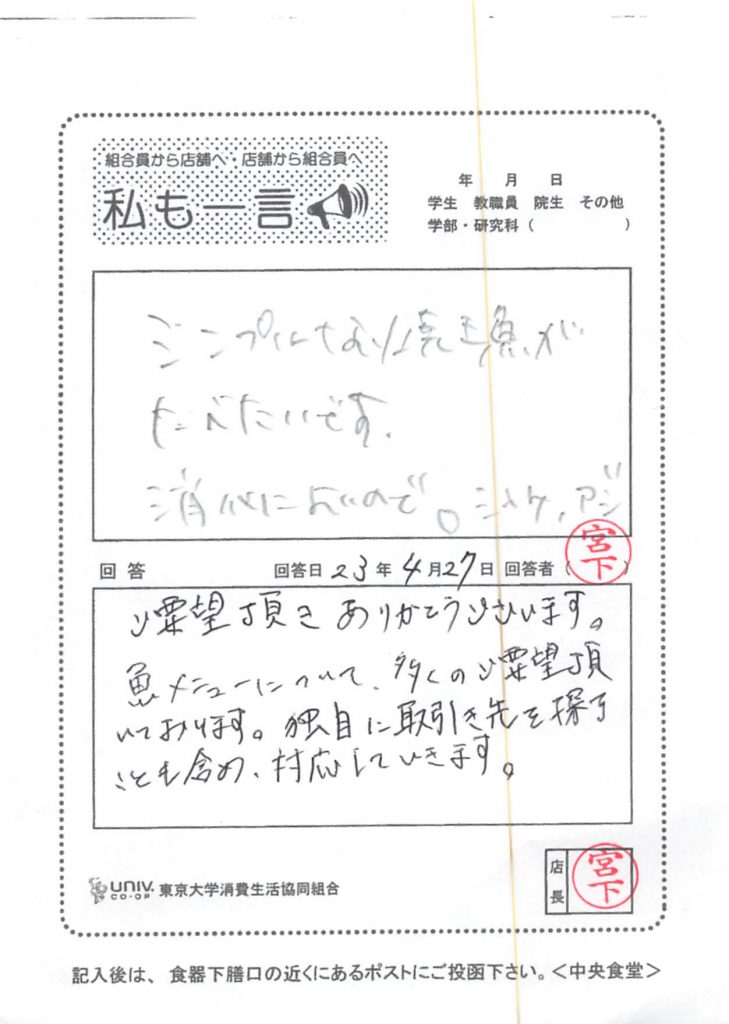 組合員から店舗へ・店舗から組合員へ
私も一言
年 月 日
学生 教職員 院生 その他
学部・研究科( )
シンプルな 焼き魚が
たべたいです.
消化に良いので。シャケ,アジ
回答 回答日 23年 4月27日 回答者( 宮下 )
ご要望頂き ありがとうございます。
魚メニューについて、多くのご要望頂
いております。独自に取引き先を探す
ことも含め、対応していきます。
UNIV. CO-OP 東京大学消費生活協同組合
店長 宮下
記入後は、食器下膳口の近くにあるポストにご投函下さい。<中央食堂>